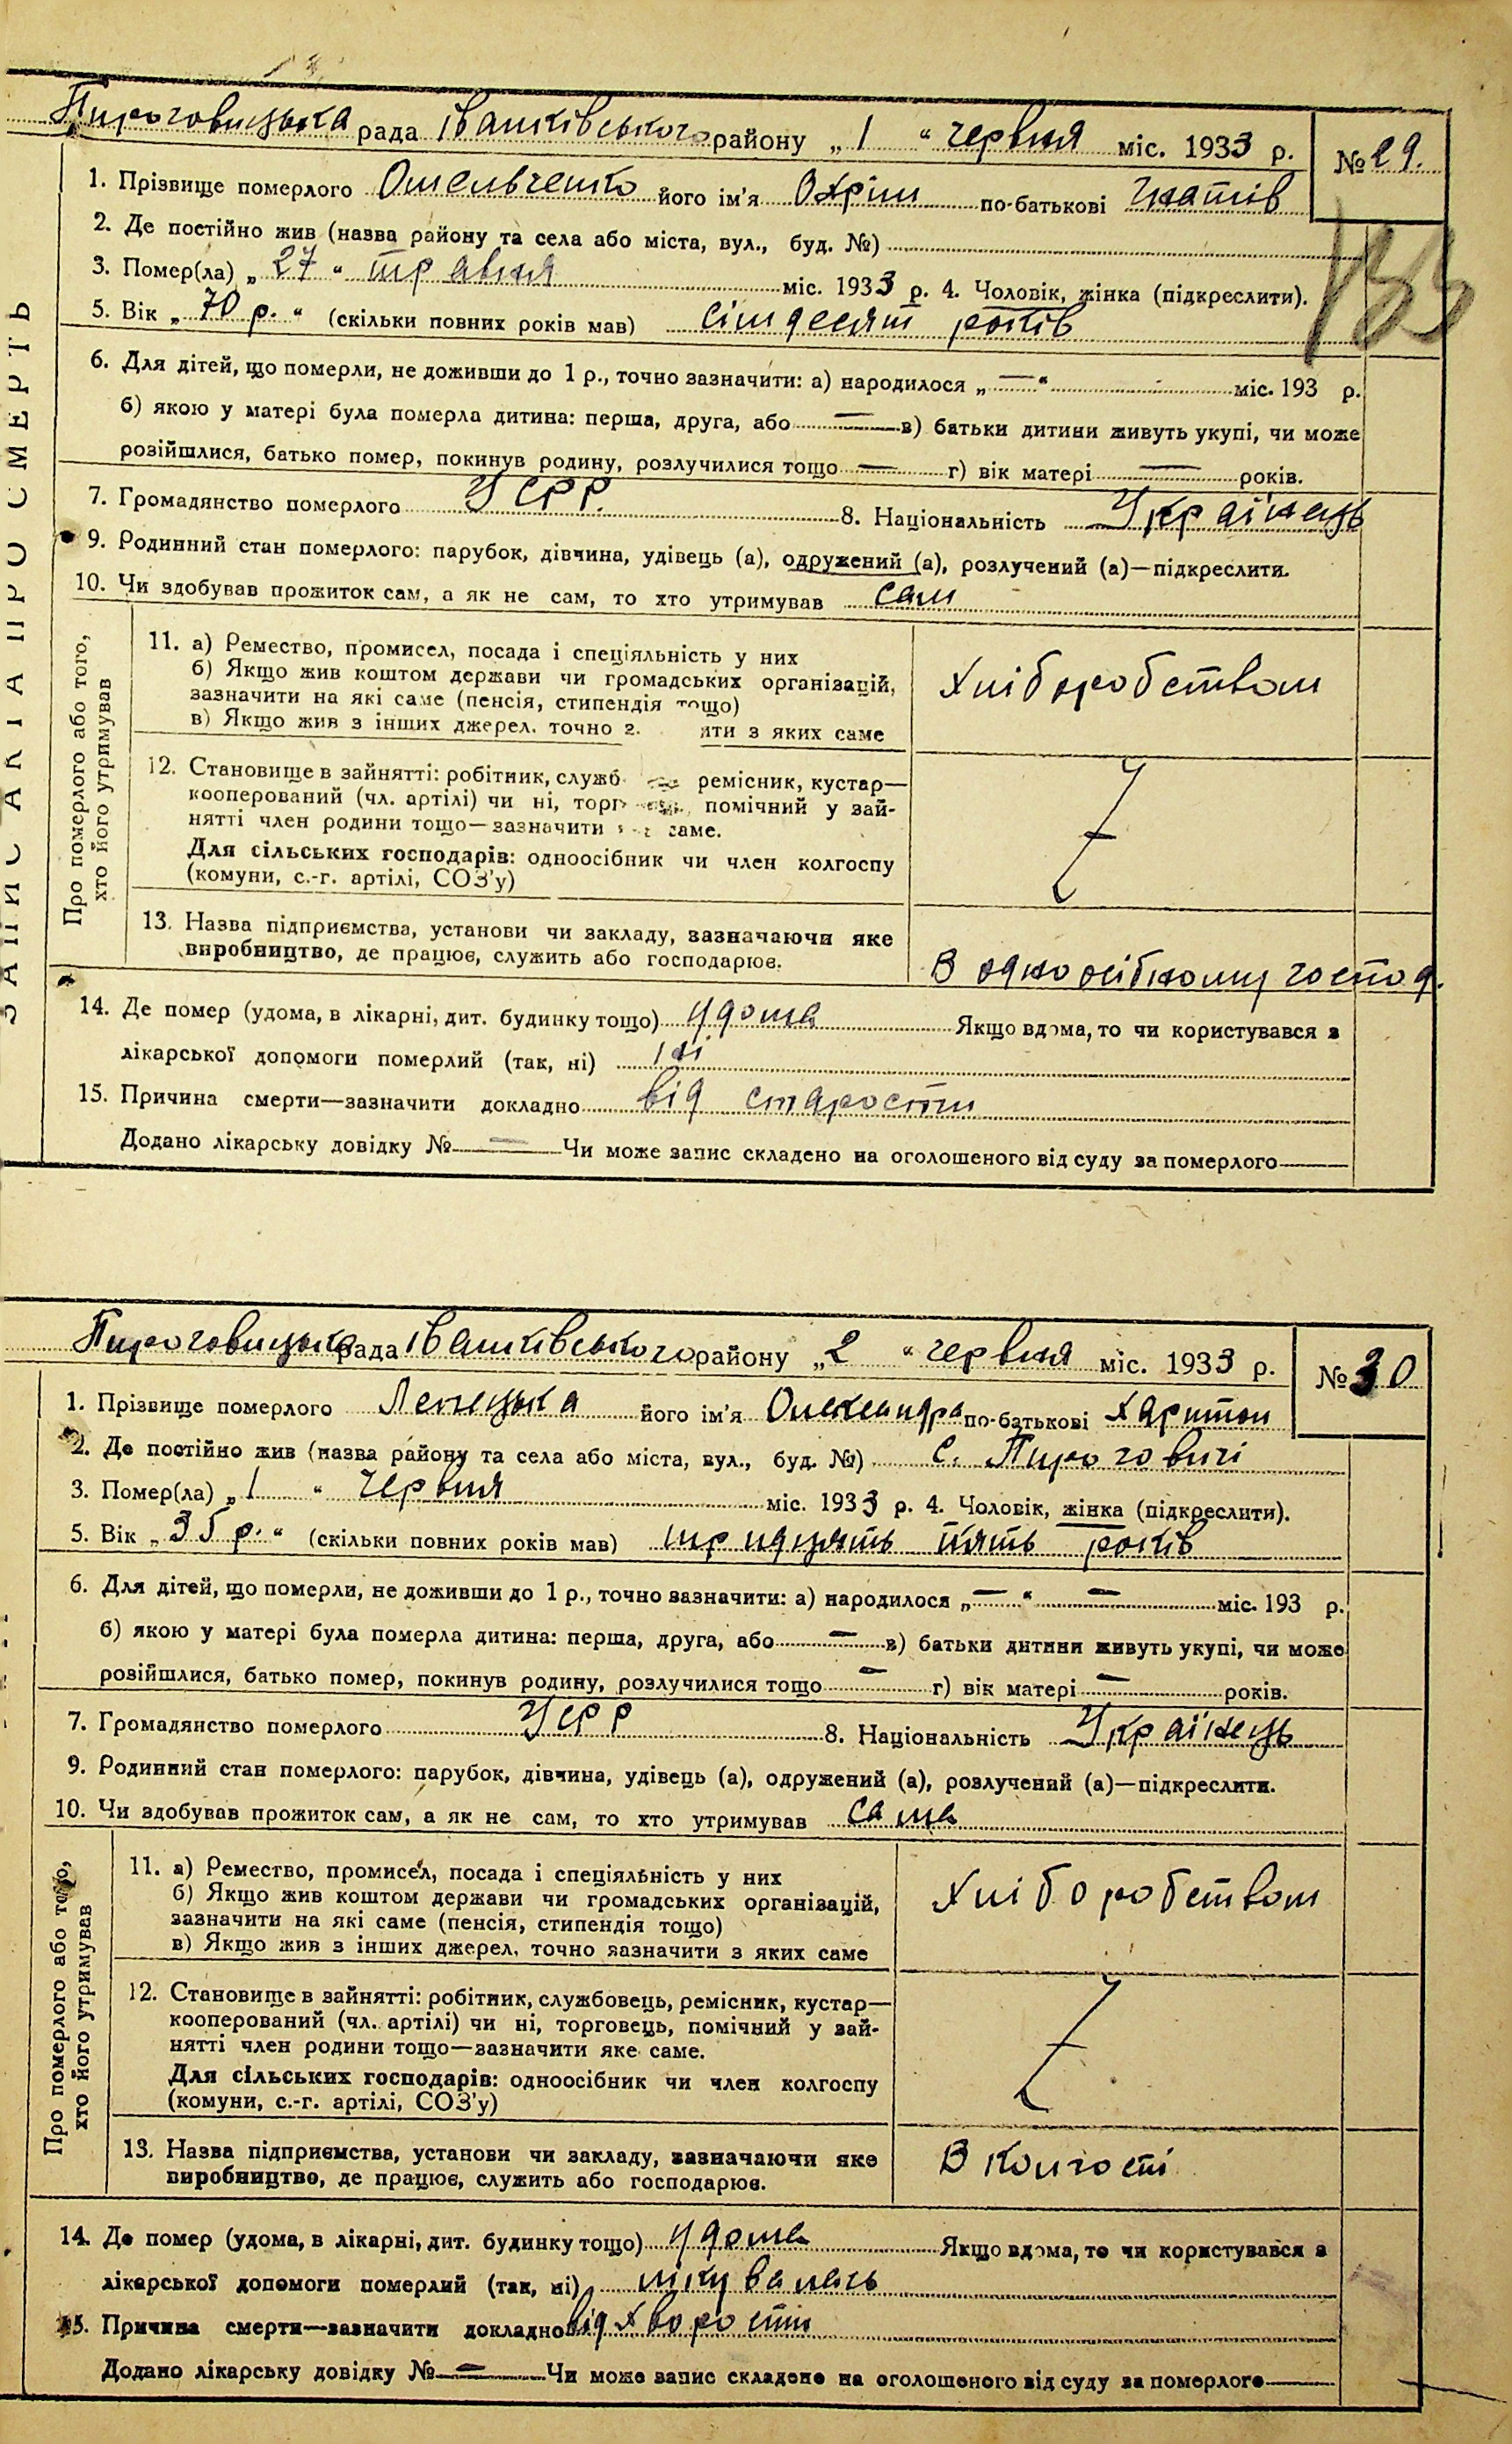 Пироговицька рада Іванківського району „1“ червня міс. 1933 р. № 29.
1. Прізвище померлого Омельченко його ім'я Охрім по-батькові Гнатів
2. Де постійно жив (назва району та села або міста, вул., буд. №)
3. Помер(ла) „27“ травня міс. 1933 р. 4. Чоловік, жінка (підкреслити).
5. Вік „70 р.“ (скільки повних років мав) сімдесят років
6. Для дітей, що померли, не доживши до 1 р., точно зазначити: а) народилося „—“ міс. 193 р.
б) якою у матері була померла дитина: перша, друга, або — в) батьки дитини живуть укупі, чи може
розійшлися, батько помер, покинув родину, розлучилися тощо — г) вік матері — років.
7. Громадянство померлого УСРР. 8. Національність Українець
9. Родинний стан померлого: парубок, дівчина, удівець (а), одружений (а), розлучений (а)—підкреслити.
10. Чи здобував прожиток сам, а як не сам, то хто утримував сам
ЗАПИС АКТА ПРО СМЕРТЬ
Про померлого або того,
хто його утримував
11. а) Ремество, промисел, посада і спеціяльність у них
б) Якщо жив коштом держави чи громадських організацій,
зазначити на які саме (пенсія, стипендія тощо)
в) Якщо жив з інших джерел, точно з ити з яких саме
Хліборобством
12. Становище в зайнятті: робітник, служб ремісник, кустар—
кооперований (чл. артілі) чи ні, торг помічний у зай-
нятті член родини тощо—зазначити саме.
Для сільських господарів: одноосібник чи член колгоспу
(комуни, с.-г. артілі, СОЗ'у)
13. Назва підприємства, установи чи закладу, зазначаючи яке
виробництво, де працює, служить або господарює.
В одноосібному господ.
14. Де помер (удома, в лікарні, дит. будинку тощо) удома Якщо вдома, то чи користувався з
лікарської допомоги померлий (так, ні) ні
15. Причина смерти—зазначити докладно від старости
Додано лікарську довідку № — Чи може запис складено на оголошеного від суду за померлого
Пироговицька рада Іванківського району „2“ червня міс. 1933 р. № 30
1. Прізвище померлого Лепецька його ім'я Олександра по-батькові Харитон
2. Де постійно жив (назва району та села або міста, вул., буд. №) с. Пироговичі
3. Помер(ла) „1“ червня міс. 1933 р. 4. Чоловік, жінка (підкреслити).
5. Вік „35 р.“ (скільки повних років мав) тридцять пять років
6. Для дітей, що померли, не доживши до 1 р., точно зазначити: а) народилося „—“ — міс. 193 р.
б) якою у матері була померла дитина: перша, друга, або — в) батьки дитини живуть укупі, чи може
розійшлися, батько помер, покинув родину, розлучилися тощо — г) вік матері — років.
7. Громадянство померлого УСРР 8. Національність Українець
9. Родинний стан померлого: парубок, дівчина, удівець (а), одружений (а), розлучений (а)—підкреслити.
10. Чи здобував прожиток сам, а як не сам, то хто утримував сама
Про померлого або того,
хто його утримував
11. а) Ремество, промисел, посада і спеціяльність у них
б) Якщо жив коштом держави чи громадських організацій,
зазначити на які саме (пенсія, стипендія тощо)
в) Якщо жив з інших джерел, точно зазначити з яких саме
Хліборобством
12. Становище в зайнятті: робітник, службовець, ремісник, кустар—
кооперований (чл. артілі) чи ні, торговець, помічний у зай-
нятті член родини тощо—зазначити яке саме.
Для сільських господарів: одноосібник чи член колгоспу
(комуни, с.-г. артілі, СОЗ'у)
13. Назва підприємства, установи чи закладу, зазначаючи яке
виробництво, де працює, служить або господарює.
В колгоспі
14. Де помер (удома, в лікарні, дит. будинку тощо) удома Якщо вдома, то чи користувався з
лікарської допомоги померлий (так, ні) лікувалась
15. Причина смерти—зазначити докладно від хворости
Додано лікарську довідку № — Чи може запис складено на оголошеного від суду за померлого